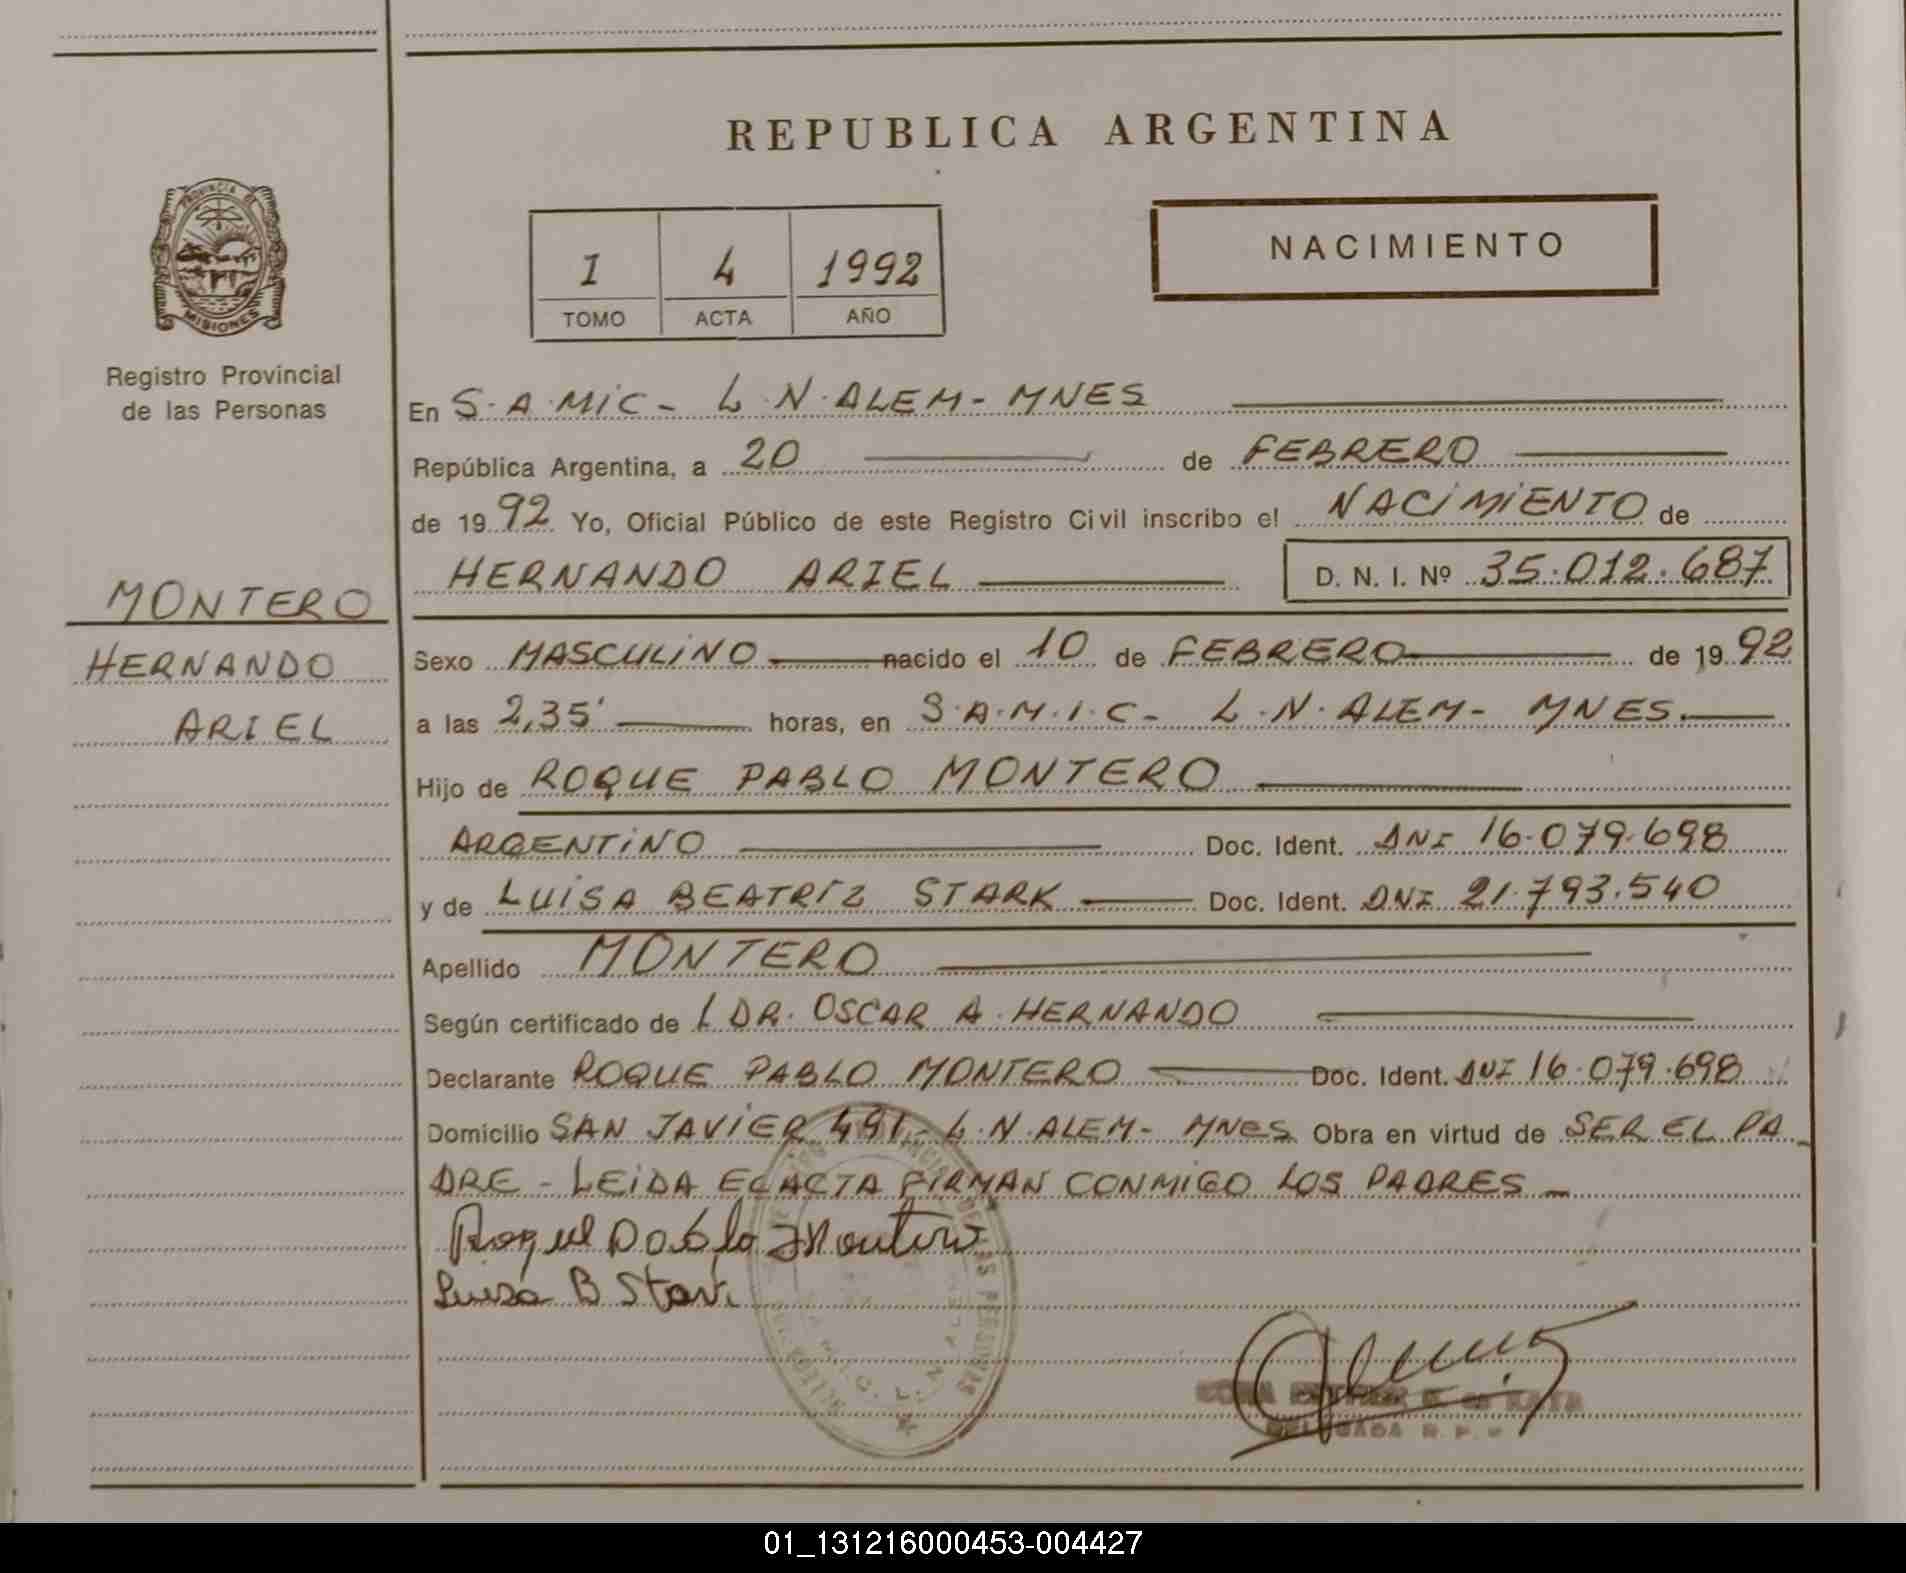 REPUBLICA ARGENTINA
PROVINCIA DE
MISIONES
Registro Provincial
de las Personas
NACIMIENTO
1 4 1992
TOMO ACTA AÑO
En S.A.MIC- L.N.ALEM- MNES
República Argentina, a 20 de FEBRERO
de 1992 Yo, Oficial Público de este Registro Civil inscribo el NACIMIENTO de
HERNANDO ARIEL D. N. I. Nº 35.012.687
MONTERO
HERNANDO
ARIEL
Sexo MASCULINO nacido el 10 de FEBRERO de 1992
a las 2,35' horas, en S.A.M.I.C- L.N.ALEM- MNES.
Hijo de ROQUE PABLO MONTERO
ARGENTINO Doc. Ident. DNI 16.079.698
y de LUISA BEATRIZ STARK Doc. Ident. DNI 21.793.540
Apellido MONTERO
Según certificado de L DR. OSCAR A. HERNANDO
Declarante ROQUE PABLO MONTERO Doc. Ident. DNI 16.079.698
Domicilio SAN JAVIER 491- L.N.ALEM- MNES Obra en virtud de SER EL PA_
DRE - LEIDA EL ACTA FIRMAN CONMIGO LOS PADRES_
Roque Pablo Montero
Luisa B Stark
DELEGADA R. P.
01_131216000453-004427